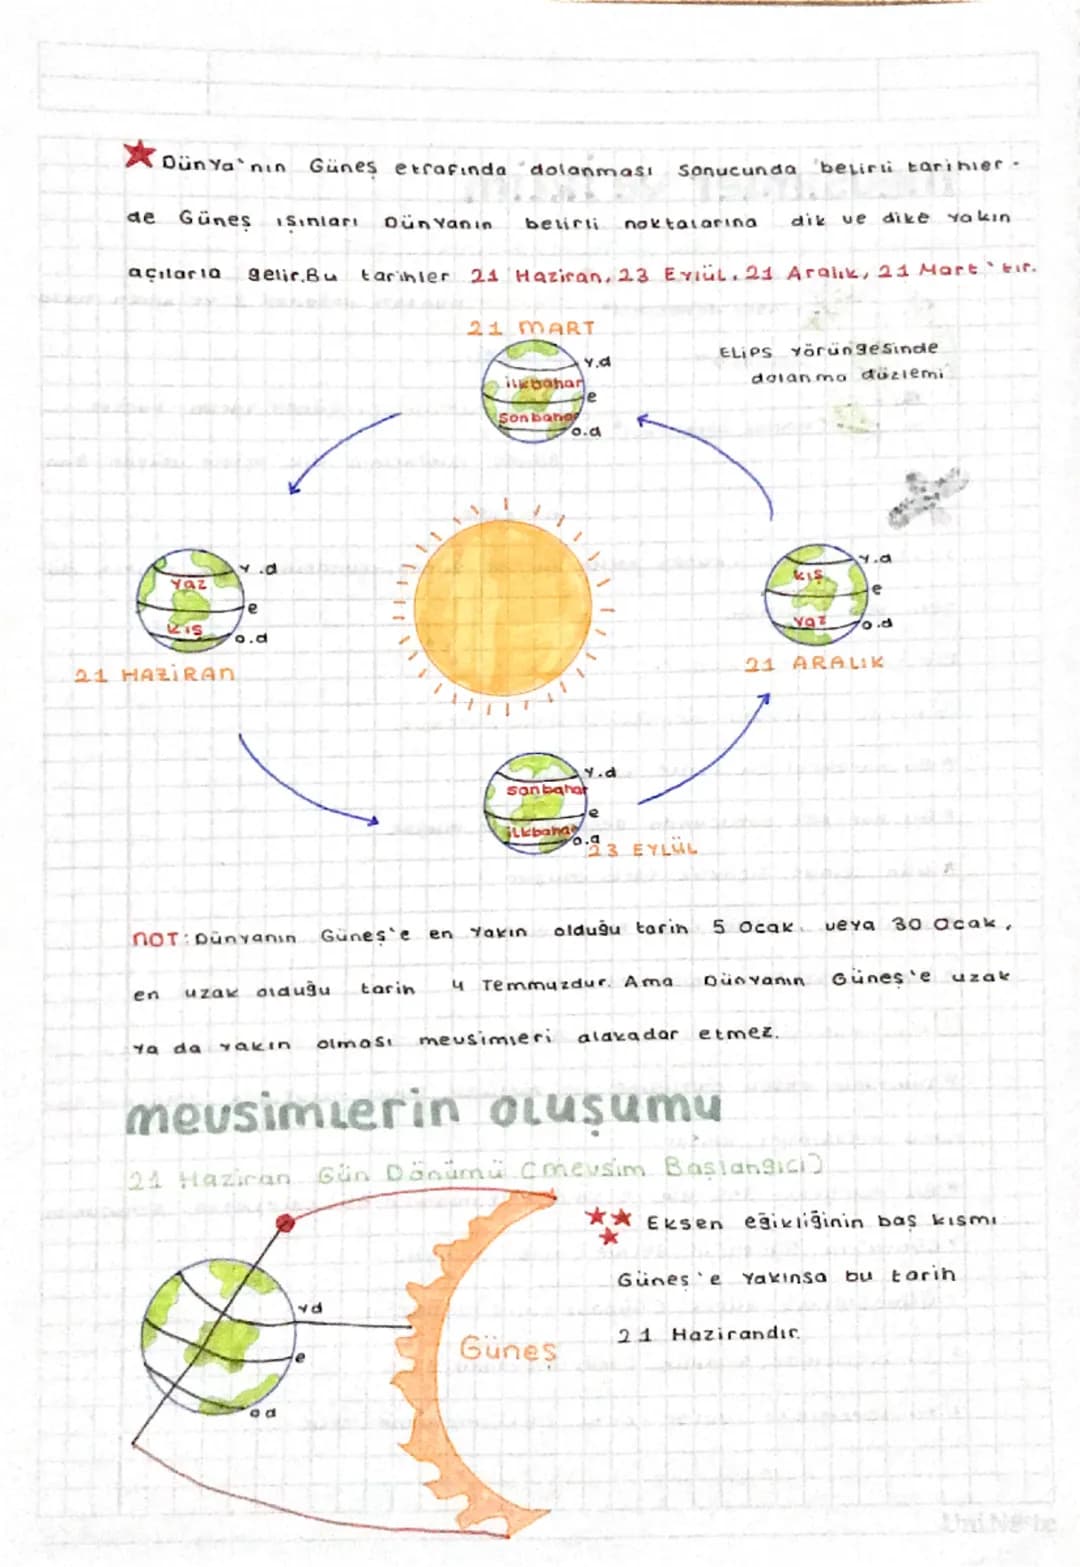 Dünya'nın Güneş etrafında dolanması Sonucunda belirli tarihler-
de Güneş ışınları Dünyanın belirli noktalarına dik ve dike yakın
açılarla gelir.Bu tarihler 21 Haziran, 23 Eylül, 21 Aralık, 21 Mart'tır.
21 MART
ELİPS Yörüngesinde
dolanma düzlemi
Y.d
ilkbahar
e
Sonbahar
o.d
Y.d
Yaz
e
Kış
o.d
21 HAZİRAN
Y.d
kış
e
Yaz
o.d
21 ARALIK
Y.d
Sonbahar
e
ilkbahar
o.d
23 EYLÜL
NOT: Dünyanın Güneş'e en Yakın olduğu tarih 5 Ocak veya 30 Ocak,
en uzak olduğu tarih 4 Temmuzdur. Ama Dünyanın Güneş'e uzak
ya da yakın olması mevsimleri alakadar etmez.
mevsimlerin oluşumu
21 Haziran Gün Dönümü (mevsim Başlangıcı)
Eksen eğikliğinin baş kısmı
Güneş'e Yakınsa bu tarih
21 Hazirandır.
yd
e
od
Güneş
UniNote